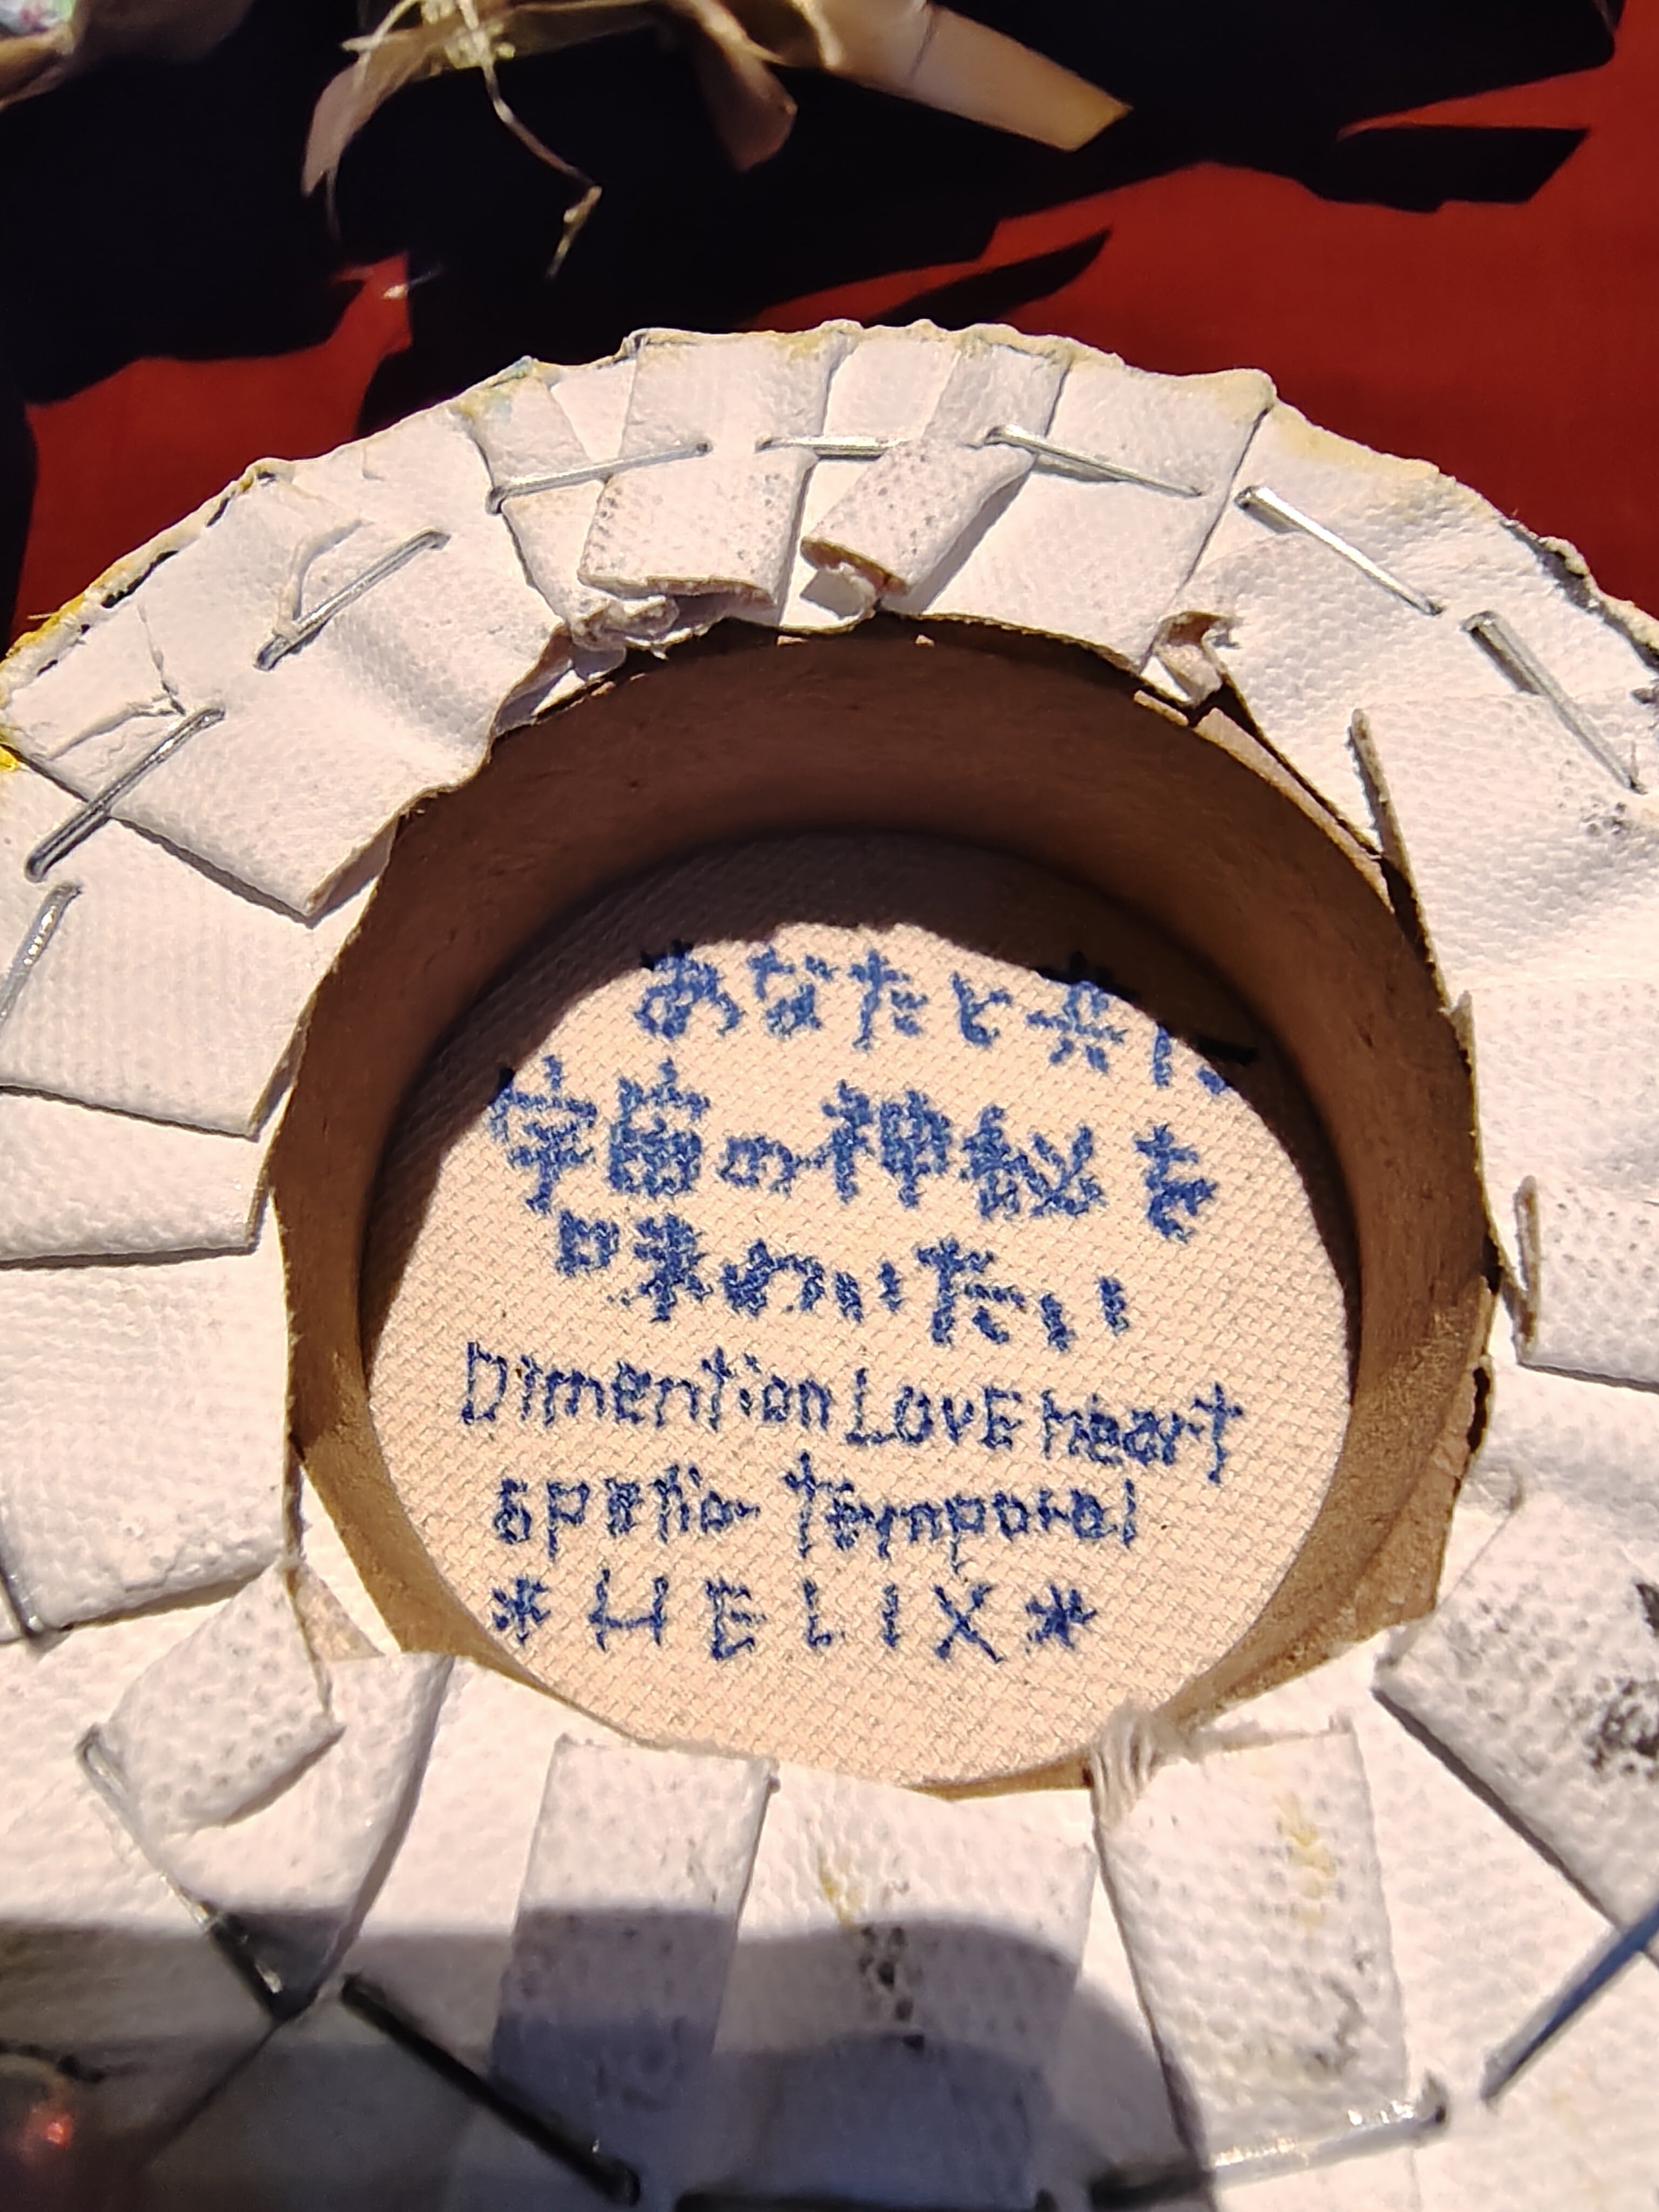 あなたと共に
宇宙の神秘を
味わいたい
Dimention LovE heart
spatio temporal
*HELIX*